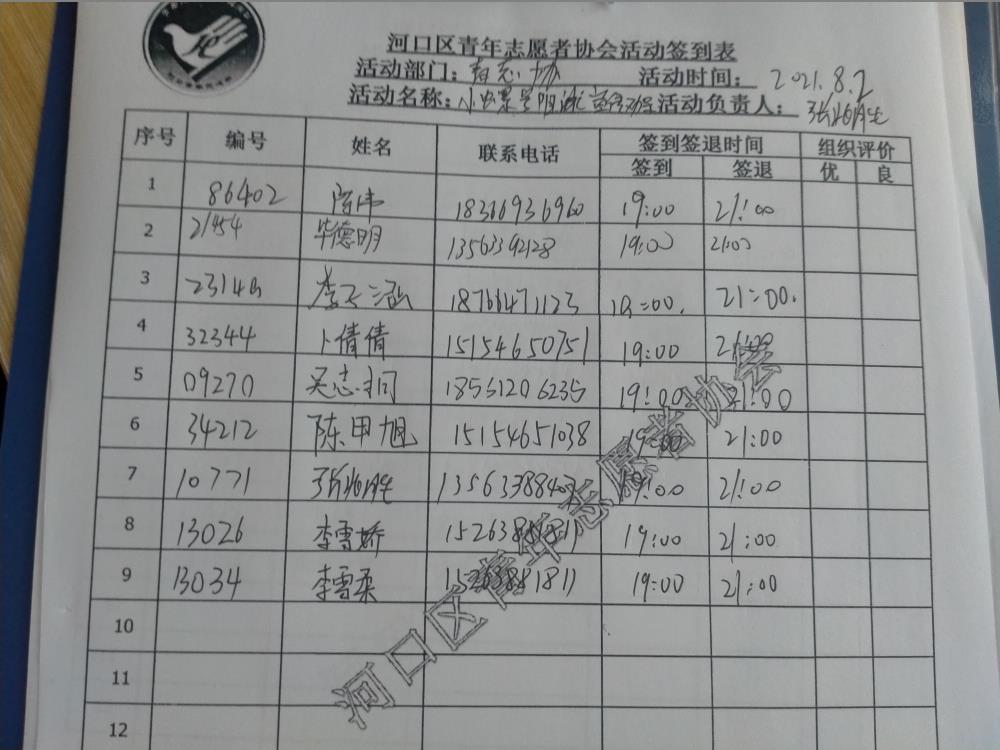 河口区青年志愿者协会活动签到表
活动部门：青志协 活动时间： 2021.8.2
活动名称： 活动负责人： 张兆胜
序号 编号 姓名 联系电话 签到签退时间 组织评价
签到 签退 优 良
1 86402 18366936960 19:00 21:00
2 21454 毕德明 13563392128 19:00 21:00
3 李飞涵 18766471123 19:00. 21:00.
4 32344 卜倩倩 15154650751 19:00 21:00
5 09270 吴志国 18561206235 19:00 21:00
6 34212 陈甲旭 15154651038 19:00 21:00
7 10771 张兆胜 19:00 21:00
8 13026 李雪娇 15263881811 19:00 21:00
9 13034 李雪柔 15263881811 19:00 21:00
10
11
12
河口区青年志愿者协会